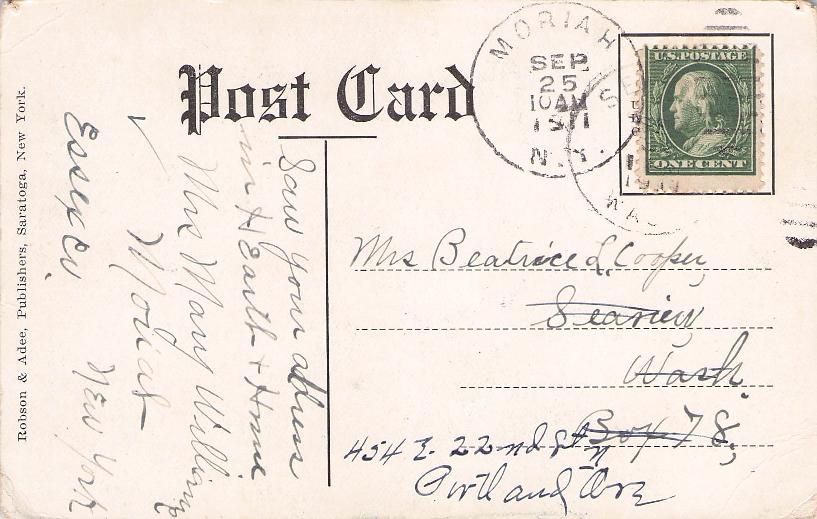 Post Card
MORIAH
SEP
25
10 AM
1911
N.Y.
U.S. POSTAGE
ONE CENT
WAS
Saw your address
in Hearth + Home
Mrs Mary Willing
Moriah
Essex Co.
New York
Mrs Beatrice L. Cooper,
Seaview,
Wash.
Box 78,
454 E. 22nd St N
Portland Ore
Robson & Adee, Publishers, Saratoga, New York.